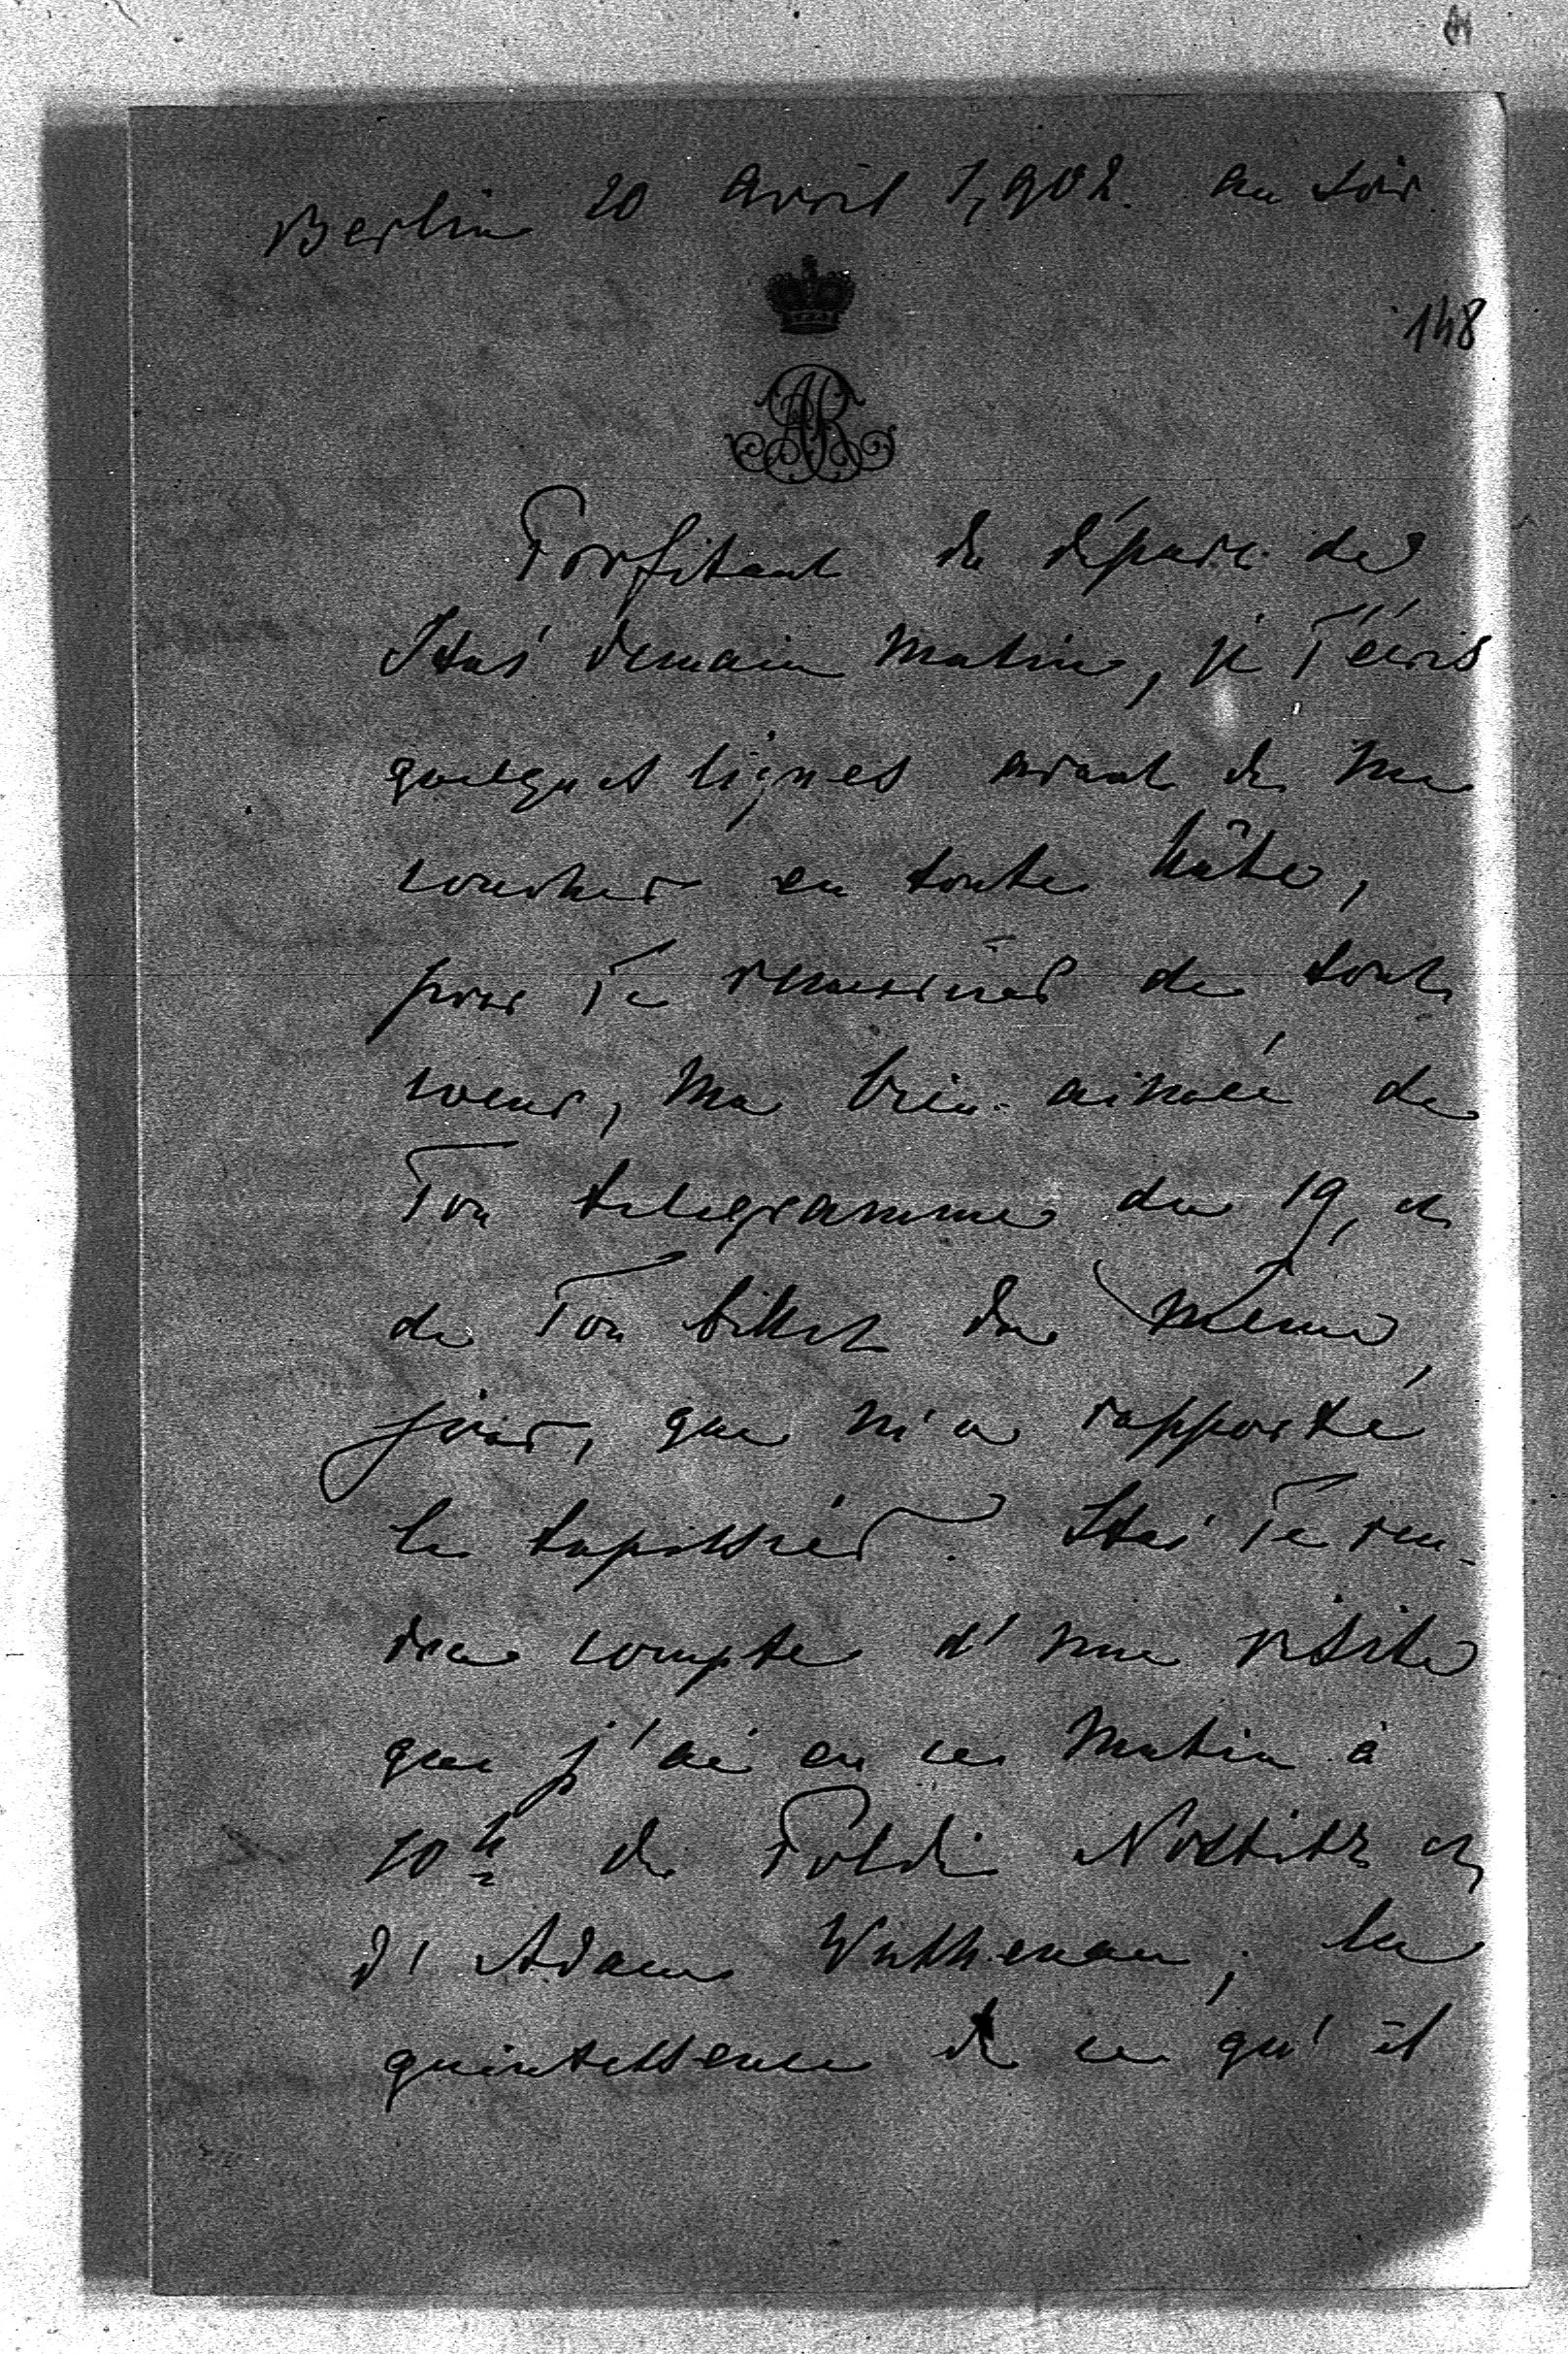 Berlin 20 avril 1,902. au soir
148
AR
Profitant du départ de
Stas' demain matin, je T'écris
quelques lignes avant de me
coucher en toute hâte,
pour Te remercier de tout
coeur, ma bien-aimée de
Ton telegramme du 19, et
de Ton billet du même
jour, que m'a rapporté
le tapissier. Stas' Te ren-
dra compte d'une visite
que j'ai eu ce matin à
10h de Poldi Nostitz et
d'Adam Wuthenau; la
quintessence de ce qu'il